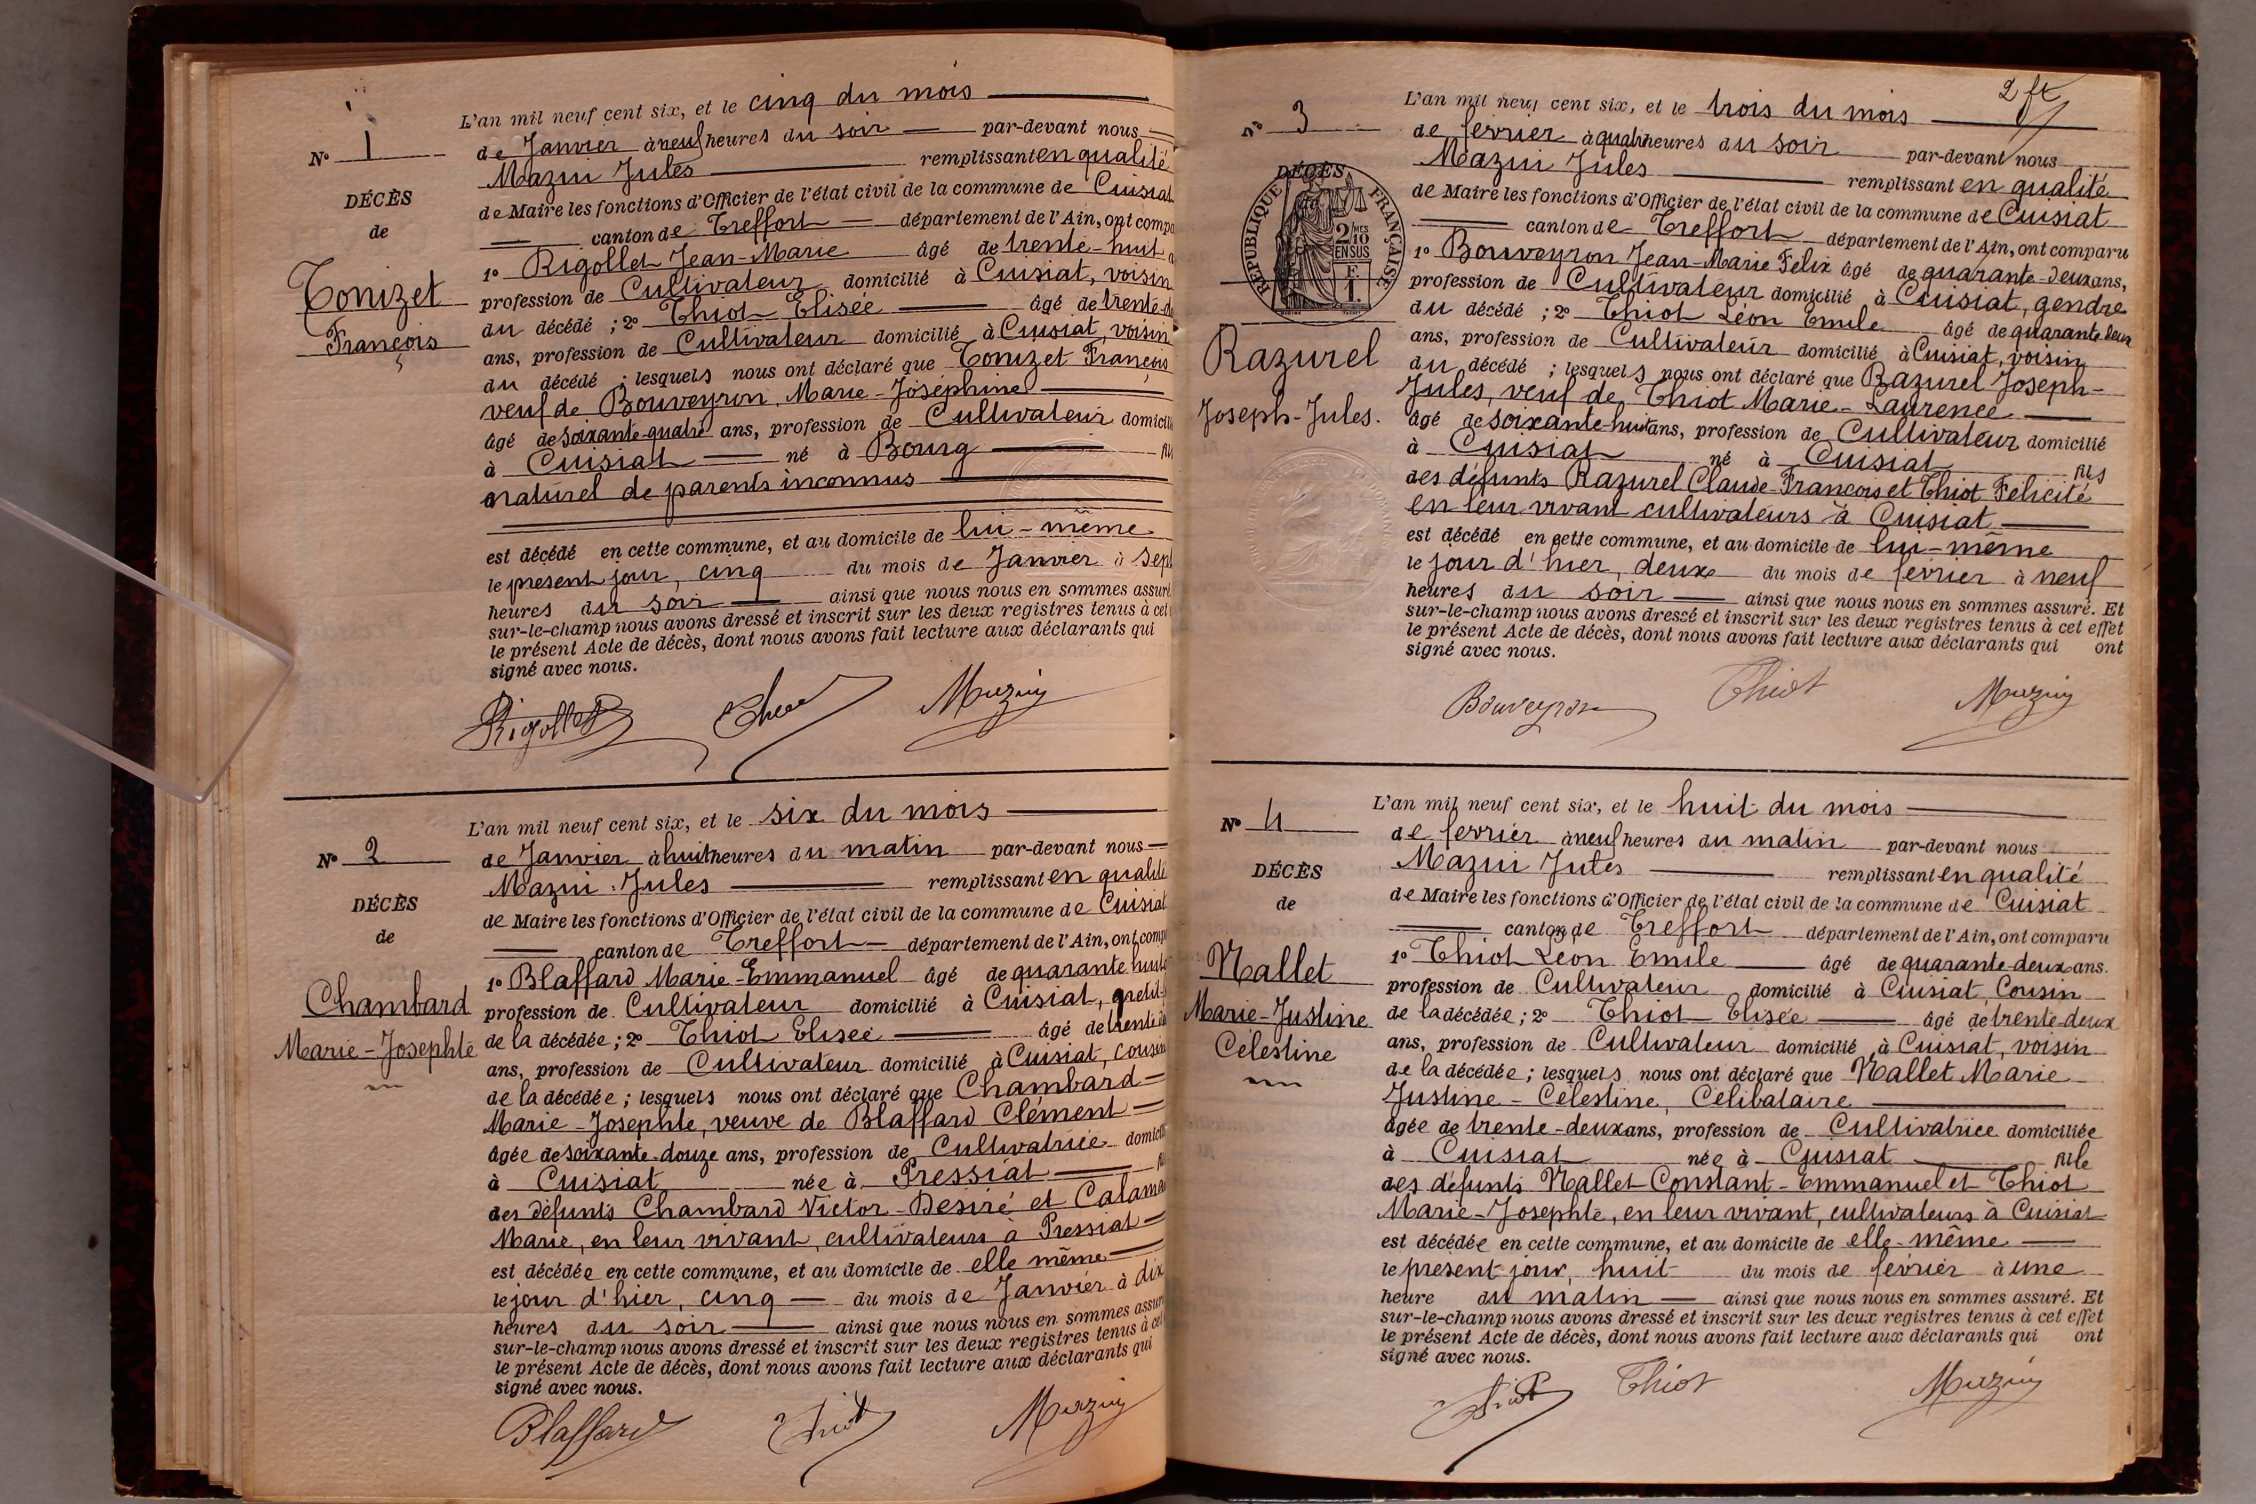 N° 1
DÉCÈS
de
Tonizet
François
L'an mil neuf cent six, et le cinq du mois
de Janvier à neuf heures du soir par-devant nous
Mazui Jules remplissant en qualité
de Maire les fonctions d'Officier de l'état civil de la commune de Cuisiat
canton de Treffort département de l'Ain, ont compa
1° Rigollet Jean-Marie âgé de trente-huit
profession de Cultivateur domicilié à Cuisiat, voisin
du décédé ; 2° Thiot Elisée âgé de trente-d
ans, profession de Cultivateur domicilié à Cuisiat, voisin
du décédé ; lesquels nous ont déclaré que Tonizet François
veuf de Bouveyron, Marie-Joséphine
âgé de soixante-quatre ans, profession de Cultivateur domicilié
à Cuisiat né à Bourg fils
naturel de parents inconnus
est décédé en cette commune, et au domicile de lui-même
le présent jour, cinq du mois de Janvier à sept
heures du soir ainsi que nous nous en sommes assuré.
sur-le-champ nous avons dressé et inscrit sur les deux registres tenus à cet
le présent Acte de décès, dont nous avons fait lecture aux déclarants qui
signé avec nous.
Rigollet Thiot Mazuy
N° 2
DÉCÈS
de
Chambard
Marie-Josephte
L'an mil neuf cent six, et le six du mois
de Janvier à huit heures du matin par-devant nous
Mazui Jules remplissant en qualité
de Maire les fonctions d'Officier de l'état civil de la commune de Cuisiat
canton de Treffort département de l'Ain, ont compa
1° Blaffard Marie-Emmanuel âgé de quarante huit
profession de Cultivateur domicilié à Cuisiat,
de la décédée ; 2° Thiot Elisée âgé de trente
ans, profession de Cultivateur domicilié à Cuisiat, cousin
de la décédée ; lesquels nous ont déclaré que Chambard
Marie-Josephte, veuve de Blaffard Clément
âgée de soixante-douze ans, profession de Cultivatrice domicili
à Cuisiat née à Pressiat
des défunts Chambard Victor-Desiré et Calama
Marie, en leur vivant, cultivateurs à Pressiat
est décédée en cette commune, et au domicile de elle même
le jour d'hier, cinq du mois de Janvier à dix
heures du soir ainsi que nous nous en sommes assuré
sur-le-champ nous avons dressé et inscrit sur les deux registres tenus à cet
le présent Acte de décès, dont nous avons fait lecture aux déclarants qui
signé avec nous.
Blaffard Thiot Mazuy
2 ft
N° 3
DÉCÈS
RÉPUBLIQUE FRANÇAISE
2/10MES
EN SUS
F.
1.
Razurel
Joseph-Jules.
L'an mil neuf cent six, et le trois du mois
de février à quatre heures du soir par-devant nous
Mazui Jules remplissant en qualité
de Maire les fonctions d'Officier de l'état civil de la commune de Cuisiat
canton de Treffort département de l'Ain, ont comparu
1° Bouveyron Jean-Marie Félix âgé de quarante-deux ans,
profession de Cultivateur domicilié à Cuisiat, gendre
du décédé ; 2° Thiot Léon Emile âgé de quarante deux
ans, profession de Cultivateur domicilié à Cuisiat, voisin
du décédé ; lesquels nous ont déclaré que Razurel Joseph-
Jules, veuf de Thiot Marie-Laurence
âgé de soixante-huit ans, profession de Cultivateur domicilié
à Cuisiat né à Cuisiat fils
des défunts Razurel Claude-François et Thiot Félicité
en leur vivant cultivateurs à Cuisiat
est décédé en cette commune, et au domicile de lui-même
le jour d'hier, deux du mois de février à neuf
heures du soir ainsi que nous nous en sommes assuré. Et
sur-le-champ nous avons dressé et inscrit sur les deux registres tenus à cet effet
le présent Acte de décès, dont nous avons fait lecture aux déclarants qui ont
signé avec nous.
Bouveyron Thiot Mazuy
N° 4
DÉCÈS
de
Nallet
Marie-Justine
Célestine
L'an mil neuf cent six, et le huit du mois
de février à neuf heures du matin par-devant nous
Mazui Jules remplissant en qualité
de Maire les fonctions d'Officier de l'état civil de la commune de Cuisiat
canton de Treffort département de l'Ain, ont comparu
1° Thiot Léon Emile âgé de quarante-deux ans.
profession de Cultivateur domicilié à Cuisiat, Cousin
de la décédée ; 2° Thiot Elisée âgé de trente-deux
ans, profession de Cultivateur domicilié à Cuisiat, voisin
de la décédée ; lesquels nous ont déclaré que Nallet Marie
Justine-Célestine, Célibataire
âgée de trente-deux ans, profession de Cultivatrice domiciliée
à Cuisiat née à Cuisiat fille
des défunts Nallet Constant-Emmanuel et Thiot
Marie-Josephte, en leur vivant, cultivateurs à Cuisiat
est décédée en cette commune, et au domicile de elle-même
le présent jour, huit du mois de février à une
heure du matin ainsi que nous nous en sommes assuré. Et
sur-le-champ nous avons dressé et inscrit sur les deux registres tenus à cet effet
le présent Acte de décès, dont nous avons fait lecture aux déclarants qui ont
signé avec nous.
Thiot Thiot Mazuy